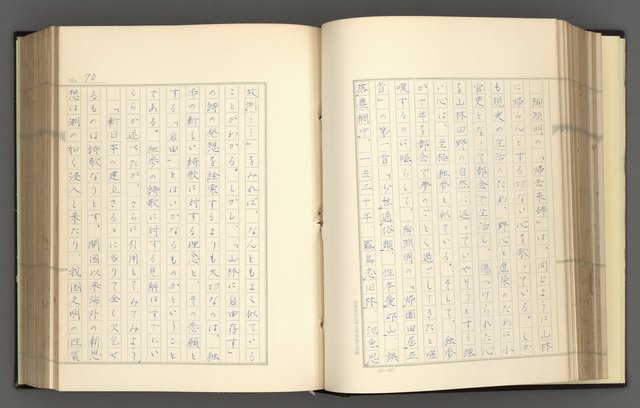 陶淵明の「帰去来辞」は、同じように山林
に帰らんとする切ない心を歌っている。しか
も現実の生活のため、野心と虚栄のために小
官吏となって都会で生活し、傷つけられた心
を山林田野の自然に返っていやそうとする強
い心は、至極独歩と似ている。そして、独歩
が十年を都会で夢のごとく過ごしてきたと嘆
嘆するのに照らして、陶淵明の「帰園田居五
首」の第一首「少無適俗韻、性本愛邱山、誤
落塵網中、一去三十年、羈鳥恋旧林、池魚思
No. 70
故淵……」をみれば、なんともよく似ている
ことがわかる。しかし、「山林に自由存す」
の詩の発想を詮索するよりも大切なのは、独
歩の新しい詩歌に対する理念と、その念願と
する「自由」とはいかなるものかということ
である。独歩の詩歌に対する見解はすでにい
くらか述べたが、さらに引用してみてみよう。
「新日本の建立さるゝに当りて全く欠乏せ
るものは詩歌なりとす。開国以来海外の新思
想は潮の如く浸入し来たり、我国文明の性質